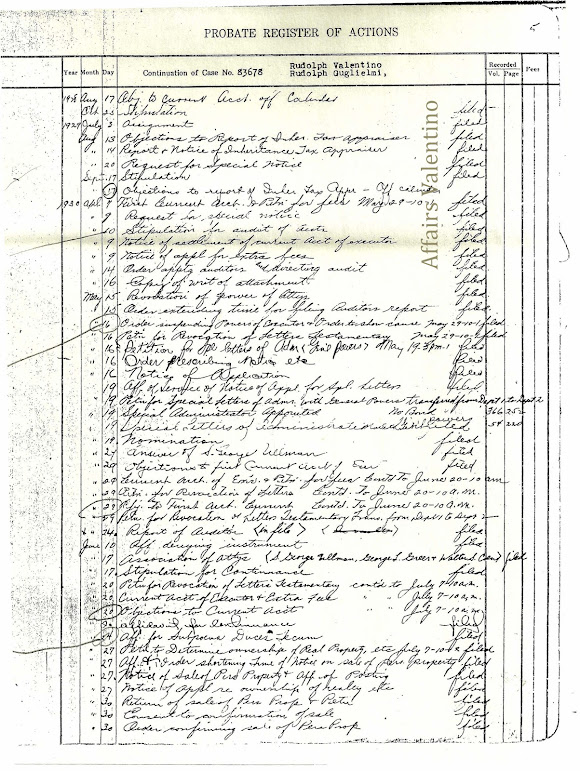 5
PROBATE REGISTER OF ACTIONS
Year Month Day Continuation of Case No. 83678 Rudolph Valentino Recorded Fees
Rudolph Guglielmi, Vol. Page
1928 Aug 17 Obj. to Current Acct. off Calendar
Oct Stipulation filed
1929 July 3 Assignment filed
Aug 13 Objections to Report of Inher Tax Appraiser filed
" 14 Report & Notice of Inheritance Tax Appraiser filed
" 20 Request for Special Notice filed
Sept 17 Stipulation filed
17 Objections to report of Inher Tax Appr - Off calendar
1930 Apl 9 First Current Acct. & Petn for fees May 29-10 filed
" 9 Request for special notice filed
" 10 Stipulation for audit of accts filed
" 9 Notice of settlement of current Acct of executor filed
" 9 Notice of appl for extra fees filed
" 14 Order apptg auditors and directing audit filed
" 16 Copy of writ of attachment filed
May 15 Revocation of power of Atty filed
" 15 Order extending time for filing Auditors report filed
" 16 Order suspending Powers of Executor & Order to show cause May 29-10 filed
" 16 Petn for Revocation of Letters Testamentary May 29-10 filed
" 16 Petition for Spl letters of Adm May 19. 2 pm filed
" 16 Order prescribing Notice etc filed
" 16 Notice of Application filed
" 19 Aff of Service of Notice of Appl. for Spl. Letters filed
" 19 Petn for Special Letters of Admr. with General Powers transferred from Dept 1 to Dept 2
" 19 Special Administrator Appointed No Bond 366 252
" 19 Special Letters of Administration filed 54 220
" 19 Nomination filed
" 27 Answer of S. George Ullman filed
" 29 Objections to first Current Acct of Exr filed
" 29 Current Acct. of Exr. & Petn. for fees Contd to June 20-10 am
" 29 Petn. for Revocation of Letters Contd. to June 20-10 a.m.
" 29 Obj. to First Acct. Current Contd. to June 20-10 a.m.
" 29 Petn for Revocation of Letters Testamentary from Dept 1 to Dept 2
" Report of Auditor (In file) filed
June 10 Aff. denying instrument filed
" 17 Association of attys (S. George Ullman, George L. Greer filed
" 17 Stipulation for Continuance filed
" 20 Petn for Revocation of Letters Testamentary contd to July 7-10 a.m.
" 20 Current Acct of Executor & Extra Fees " " July 7-10 a.m.
" 20 Objections to Current Acct " " July 7-10 a.m.
" for Continuance filed
" 24 Aff. for Subpoena Duces Tecum filed
" 27 Petn to Determine ownership of Real Property etc July 7-10 filed
" 27 Aff & Order shortening time of Notice on sale of Pers property filed
" 27 Notice of Sale of Pers Property & Aff of Posting filed
" 27 Notice of Appl re ownership of realty etc filed
" 30 Return of sale of Pers Prop & Petn filed
" 30 Consent to confirmation of sale filed
" 30 Order confirming sale of Pers Prop filed
Affairs Valentino